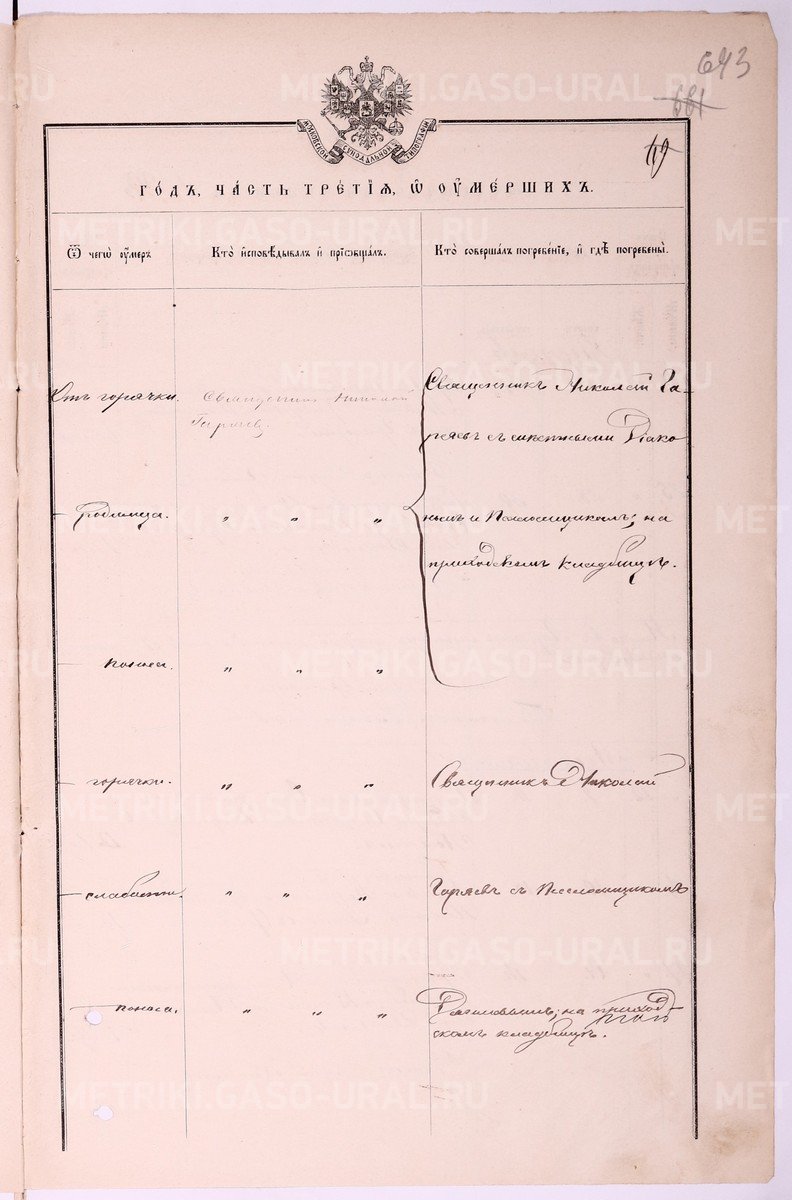 643
681
119
МОСКОВСКОЙ СѴНОДАЛЬНОЙ ТИПОГРАФІИ
ГО́ДЪ, ЧА́СТЬ ТРЕ́ТІѦ, Ѿ ОУ҆МЕ́РШИХЪ.
Ѿ чегѡ̀ оу҆́меръ
Кто̀ и҆сповѣ́дывалъ и҆ прїѡбща́лъ.
Кто̀ соверша́лъ погребе́нїе, и҆ гдѣ̀ погребены̀.
Отъ горячки.
Священникъ Николай
Гаряевъ.
Священникъ Николай Га-
ряевъ съ Діако
– Родимца.
" " "
номъ и Псаломщикомъ; на
приходскомъ кладбищѣ.
– поноса.
" " "
– горячки.
" " "
Священникъ Николай
– слабости.
" " "
Гаряевъ съ Псаломщикомъ
– поноса.
" " "
на приход
скомъ кладбищѣ.
METRIKI.GASO-URAL.RU